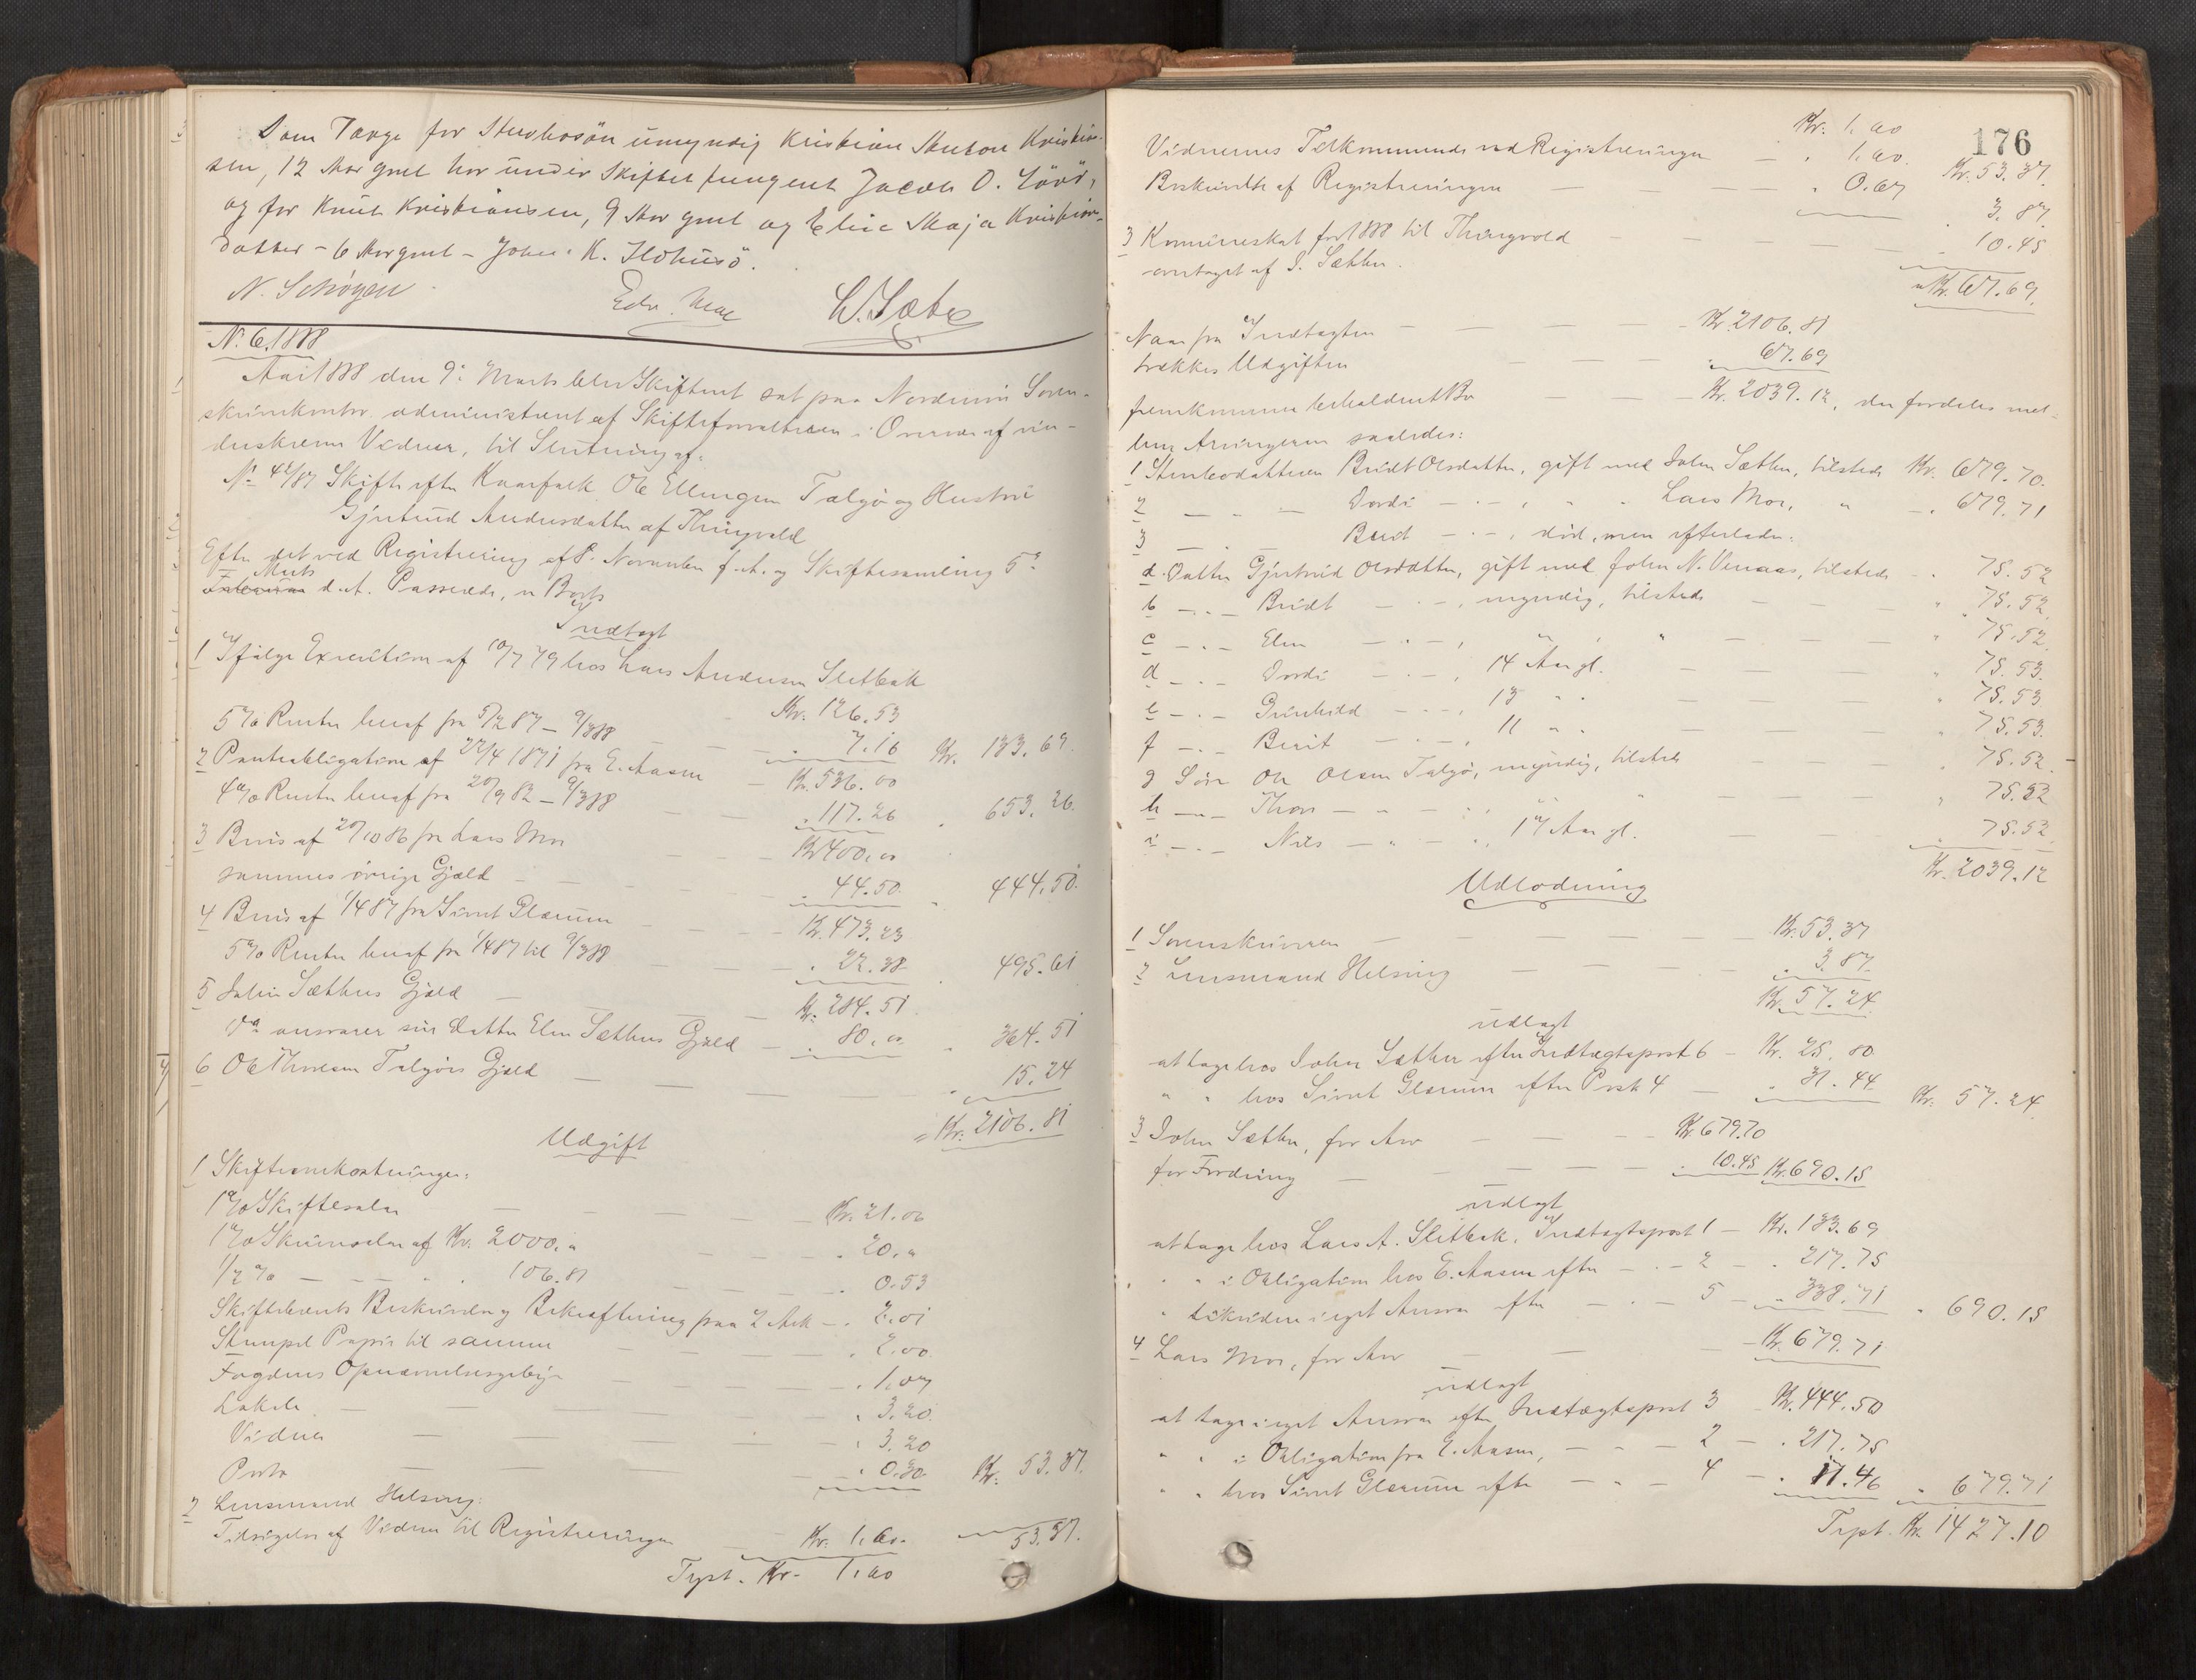 Som Værge for Sterbosön umyndig Kristian Anton Kristian-
sen, 12 Aar gml har under Skiftet fungeret Jacob O.
og for Knut Kristiansen, 9 Aar gml og Eline Maja Kristians-
datter - 6 Aar gml - John K.
N. Schøyen W. Sæter
No. 6. 1888
Aar 1888 den 9: Marts blev Skifteret sat paa Nordmøre Soren-
skriverkontor administreret af Skifteforvalteren i Overvær af un-
derskrevne Vidner, til Slutning af:
No. 42/87 Skifte efter Kaarfolk Ole Ellingsen Talgø og Hustru
Gjertrud Andersdatter af Thingvold
Efter det ved Registrering af 8. November f. A. og Skiftesamling 5:
Marts
Februar d. A. Passerede, er Boets
Indtægt
1 Ifølge Execution af 10/7 79 hos Lars Andersen Sletbak
Kr. 126.53
5% Renter heraf fra 5/2 87 - 9/3 88 — — „ 7.16 Kr. 133.69.
2 Panteobligation af 22/4 1871 fra E. Aasen Kr. 536.00
4% Renter heraf fra 20/9 82 - 9/3 88 — — „ 117.26 „ 653.26.
3 Bevis af 20/10 86 fra Lars Moe — — Kr 400,00
sammes øvrige Gjæld — — „ 44.50 „ 444.50.
4 Bevis af 1/4 87 fra Sivert Glærum — — Kr. 473.23
5% Renter heraf fra 1/4 87 til 9/3 88 — — „ 22.38 „ 495.61
5 John Sæthers Gjæld — — Kr. 284.51
Do ansvarer sin Datter Elen Sæthers Gjæld — „ 80,00 „ 364.51
6 Ole Thoresen Talgøes Gjæld — — „ 15.24
Kr. 2106.81
Udgift
1 Skifteomkostninger:
1% Skiftesalær — — Kr. 21.06
1% Skriversalær af Kr. 2000,„ — — „ 20.„
1/2 % — — „ 106.81 — — „ 0.53
Skiftebrevets Beskrivelse og Bekræftning paa 2 Ark — „ 2.01
Stempel Papir til samme — — „ 2.00
Fogdens Opnævnelsesgebyr — — „ 1.07
Lokale — — „ 3.20
Vidner — — „ 3.20
Porto — — „ 0.30 Kr. 53.37.
2 Lensmand Helsing:
Tilsigelse af Vidner til Registreringen — Kr. 1.60. 53.37.
Trpt. Kr. 1,60
176
Kr. 1,60
Vidnernes Tilkommende ved Registreringen — „ 1.60. Kr. 53.37.
Beskrivelse af Registreringen — — „ 0.67
3.87
3 Kommuneskat for 1888 til Thingvold — — 10.45
overtaget af J. Sæther.
Kr. 67.69.
Naar fra Indtægten — — Kr. 2106.81
trækkes Udgiften — — „ 67.69
fremkommer beholdent Bo — — Kr. 2039.12, der fordeles mel-
lem Arvingerne saaledes:
1 Sterbodatteren Beridt Olsdatter, gift med John Sæther, tilstede Kr. 679.70.
2 — „ — Dordi — „ — , „ „ Lars Moe, „ — „ 679.71
3 — „ — Berit — „ —, død, men efterlader:
a. Datter Gjertrud Olsdatter, gift med John N. Venaas, tilstede — „ 75.52
b — „ — Beridt — „ —, myndig, tilstede — — „ 75.52
c — „ — Elen — „ —, „ , „ — — „ 75.52
d — „ — Dordi — „ —, 14 Aar gl. — — „ 75.53.
e — „ — Gunhild — „ —, 13 „ „ — — „ 75.53.
f — „ — Berit — „ —, 11 „ „ — — „ 75.53.
g Søn Ole Olsen Talgø, myndig, tilstede — — „ 75.52
h — „ — Thore — „ — „ , „ „ — — „ 75.52
i — „ — Nils — „ — „, 17 Aar gl. — — „ 75.52
Kr. 2039.12
Udlodning
1 Sorenskriveren — — Kr. 53.37
2 Lensmand Helsing — — „ 3.87
Kr. 57.24
udlagt
at tage hos John Sæther efter Indtægtspost 6 — Kr. 25.80
„ „ hos Sivert Glærum efter Post 4 — „ 31.44 Kr. 57.24
3 John Sæther, for Arv — — Kr. 679.70
for Fordring — — „ 10.45 Kr. 690.15
udlagt
at tage hos Lars A. Sletbak, Indtægtspost 1 — Kr. 133.69
„ „ i Obligation hos E. Aasen efter — „ — 2 — „ 217.75
„ likvidere i eget Ansvar efter — „ — 5 — „ 338.71 „ 690.15
4 Lars Moe, for Arv — — Kr. 679.71
udlagt
at tage i eget Ansvar efter Indtægtspost 3 Kr. 444.50
„ „ i Obligation fra E. Aasen, — „ — 2 — „ 217.75
„ „ hos Sivert Glærum efter — „ — 4 — „ 17.46 „ 679.71
Trpt. Kr. 1427.10